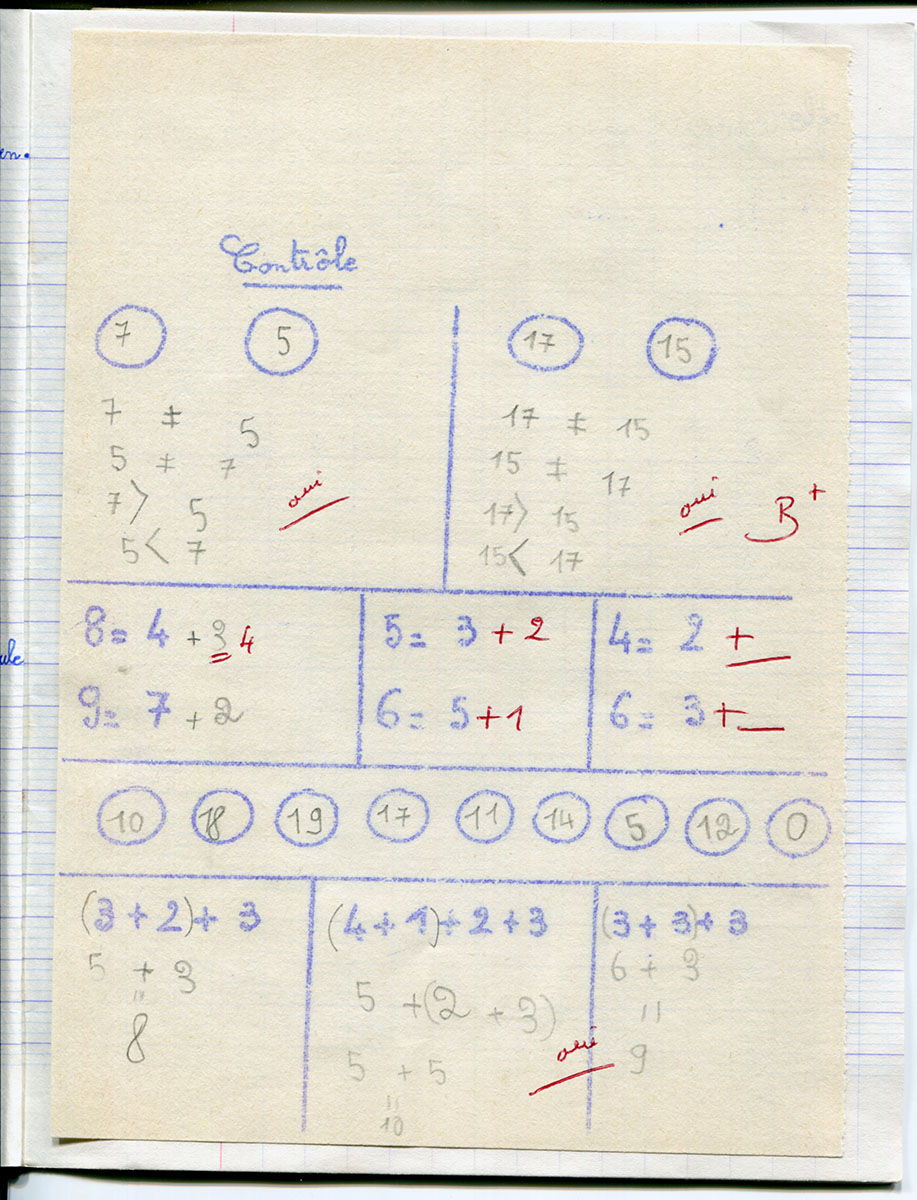 en.
Contrôle
7 5 17 15
7 ≠ 5 17 ≠ 15
5 ≠ 7 15 ≠ 17
7 > 5 oui 17 > 15 oui B+
5 < 7 15 < 17
8 = 4 + 3 4 5 = 3 + 2 4 = 2 + _
9 = 7 + 2 6 = 5 + 1 6 = 3 + _
10 18 19 17 11 14 5 12 0
(3 + 2) + 3 (4 + 1) + 2 + 3 (3 + 3) + 3
5 + 3 5 + (2 + 3) 6 + 3
= = 
8 5 + 5 oui 9
=
10